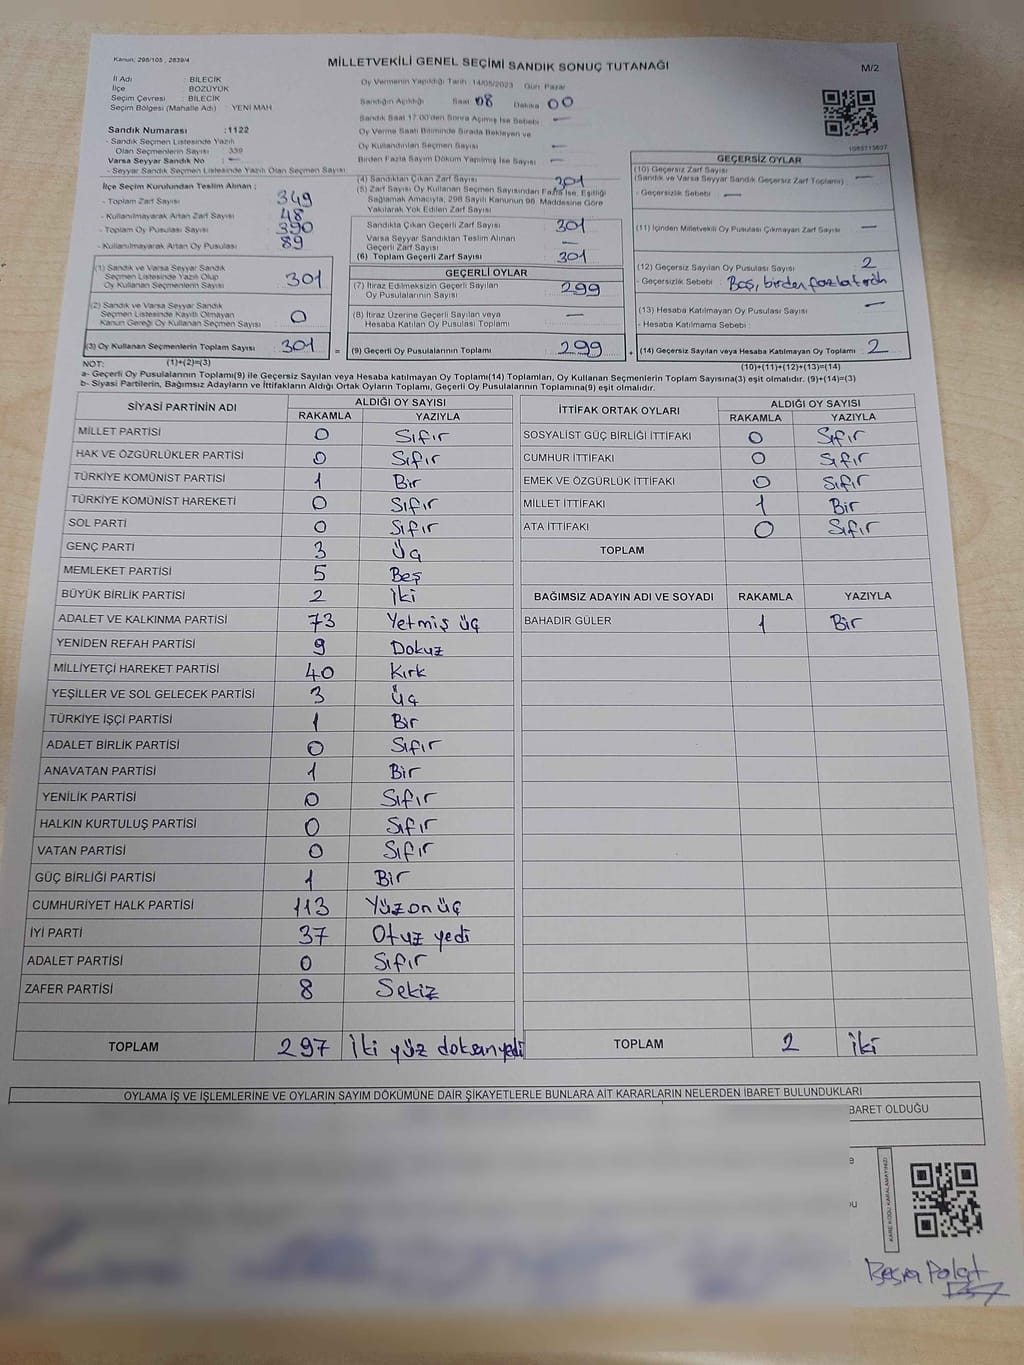 Kanun: 298/105 , 2839/4
MİLLETVEKİLİ GENEL SEÇİMİ SANDIK SONUÇ TUTANAĞI
M/2
İl Adı : BİLECİK
İlçe : BOZÜYÜK
Seçim Çevresi : BİLECİK
Seçim Bölgesi (Mahalle Adı) : YENİ MAH
Oy Vermenin Yapıldığı Tarih 14/05/2023 Gün: Pazar
Sandığın Açıldığı Saat 08 Dakika 00
Sandık Saat 17.00'den Sonra Açılmış İse Sebebi —
Oy Verme Saati Bitiminde Sırada Bekleyen ve
Oy Kullandırılan Seçmen Sayısı —
Birden Fazla Sayım Döküm Yapılmış İse Sayısı —
Sandık Numarası :1122
- Sandık Seçmen Listesinde Yazılı
Olan Seçmenlerin Sayısı 339
Varsa Seyyar Sandık No : —
- Seyyar Sandık Seçmen Listesinde Yazılı Olan Seçmen Sayısı
İlçe Seçim Kurulundan Teslim Alınan ;
- Toplam Zarf Sayısı 349
- Kullanılmayarak Artan Zarf Sayısı 48
- Toplam Oy Pusulası Sayısı 390
- Kullanılmayarak Artan Oy Pusulası 89
(1) Sandık ve Varsa Seyyar Sandık
Seçmen Listesinde Yazılı Olup
Oy Kullanan Seçmenlerin Sayısı 301
(2) Sandık ve Varsa Seyyar Sandık
Seçmen Listesinde Kayıtlı Olmayan
Kanun Gereği Oy Kullanan Seçmen Sayısı 0
(3) Oy Kullanan Seçmenlerin Toplam Sayısı 301 =
(4) Sandıktan Çıkan Zarf Sayısı 301
(5) Zarf Sayısı Oy Kullanan Seçmen Sayısından Fazla İse, Eşitliği
Sağlamak Amacıyla, 298 Sayılı Kanunun 98. Maddesine Göre
Yakılarak Yok Edilen Zarf Sayısı
Sandıkta Çıkan Geçerli Zarf Sayısı 301
Varsa Seyyar Sandıktan Teslim Alınan
Geçerli Zarf Sayısı —
(6) Toplam Geçerli Zarf Sayısı 301
GEÇERLİ OYLAR
(7) İtiraz Edilmeksizin Geçerli Sayılan
Oy Pusulalarının Sayısı 299
(8) İtiraz Üzerine Geçerli Sayılan veya
Hesaba Katılan Oy Pusulası Toplamı —
(9) Geçerli Oy Pusulalarının Toplamı 299 +
GEÇERSİZ OYLAR
(10) Geçersiz Zarf Sayısı
(Sandık ve Varsa Seyyar Sandık Geçersiz Zarf Toplamı) —
- Geçersizlik Sebebi : —
(11) İçinden Milletvekili Oy Pusulası Çıkmayan Zarf Sayısı —
(12) Geçersiz Sayılan Oy Pusulası Sayısı 2
- Geçersizlik Sebebi : Boş, birden fazla tercih
(13) Hesaba Katılmayan Oy Pusulası Sayısı —
- Hesaba Katılmama Sebebi :
(14) Geçersiz Sayılan veya Hesaba Katılmayan Oy Toplamı 2
NOT: (1)+(2)=(3) (10)+(11)+(12)+(13)=(14)
a- Geçerli Oy Pusulalarının Toplamı(9) ile Geçersiz Sayılan veya Hesaba katılmayan Oy Toplamı(14) Toplamları, Oy Kullanan Seçmenlerin Toplam Sayısına(3) eşit olmalıdır. (9)+(14)=(3)
b- Siyasi Partilerin, Bağımsız Adayların ve İttifakların Aldığı Ortak Oyların Toplamı, Geçerli Oy Pusulalarının Toplamına(9) eşit olmalıdır.
SİYASİ PARTİNİN ADI ALDIĞI OY SAYISI
RAKAMLA YAZIYLA
MİLLET PARTİSİ 0 Sıfır
HAK VE ÖZGÜRLÜKLER PARTİSİ 0 Sıfır
TÜRKİYE KOMÜNİST PARTİSİ 1 Bir
TÜRKİYE KOMÜNİST HAREKETİ 0 Sıfır
SOL PARTİ 0 Sıfır
GENÇ PARTİ 3 Üç
MEMLEKET PARTİSİ 5 Beş
BÜYÜK BİRLİK PARTİSİ 2 İki
ADALET VE KALKINMA PARTİSİ 73 Yetmiş üç
YENİDEN REFAH PARTİSİ 9 Dokuz
MİLLİYETÇİ HAREKET PARTİSİ 40 Kırk
YEŞİLLER VE SOL GELECEK PARTİSİ 3 Üç
TÜRKİYE İŞÇİ PARTİSİ 1 Bir
ADALET BİRLİK PARTİSİ 0 Sıfır
ANAVATAN PARTİSİ 1 Bir
YENİLİK PARTİSİ 0 Sıfır
HALKIN KURTULUŞ PARTİSİ 0 Sıfır
VATAN PARTİSİ 0 Sıfır
GÜÇ BİRLİĞİ PARTİSİ 1 Bir
CUMHURİYET HALK PARTİSİ 113 Yüz on üç
İYİ PARTİ 37 Otuz yedi
ADALET PARTİSİ 0 Sıfır
ZAFER PARTİSİ 8 Sekiz
TOPLAM 297 İki yüz doksan yedi
İTTİFAK ORTAK OYLARI ALDIĞI OY SAYISI
RAKAMLA YAZIYLA
SOSYALİST GÜÇ BİRLİĞİ İTTİFAKI 0 Sıfır
CUMHUR İTTİFAKI 0 Sıfır
EMEK VE ÖZGÜRLÜK İTTİFAKI 0 Sıfır
MİLLET İTTİFAKI 1 Bir
ATA İTTİFAKI 0 Sıfır
TOPLAM
BAĞIMSIZ ADAYIN ADI VE SOYADI RAKAMLA YAZIYLA
BAHADIR GÜLER 1 Bir
TOPLAM 2 İki
OYLAMA İŞ VE İŞLEMLERİNE VE OYLARIN SAYIM DÖKÜMÜNE DAİR ŞİKAYETLERLE BUNLARA AİT KARARLARIN NELERDEN İBARET BULUNDUKLARI
BARET OLDUĞU
KARE KODU KARALAMAYINIZ!
Polat